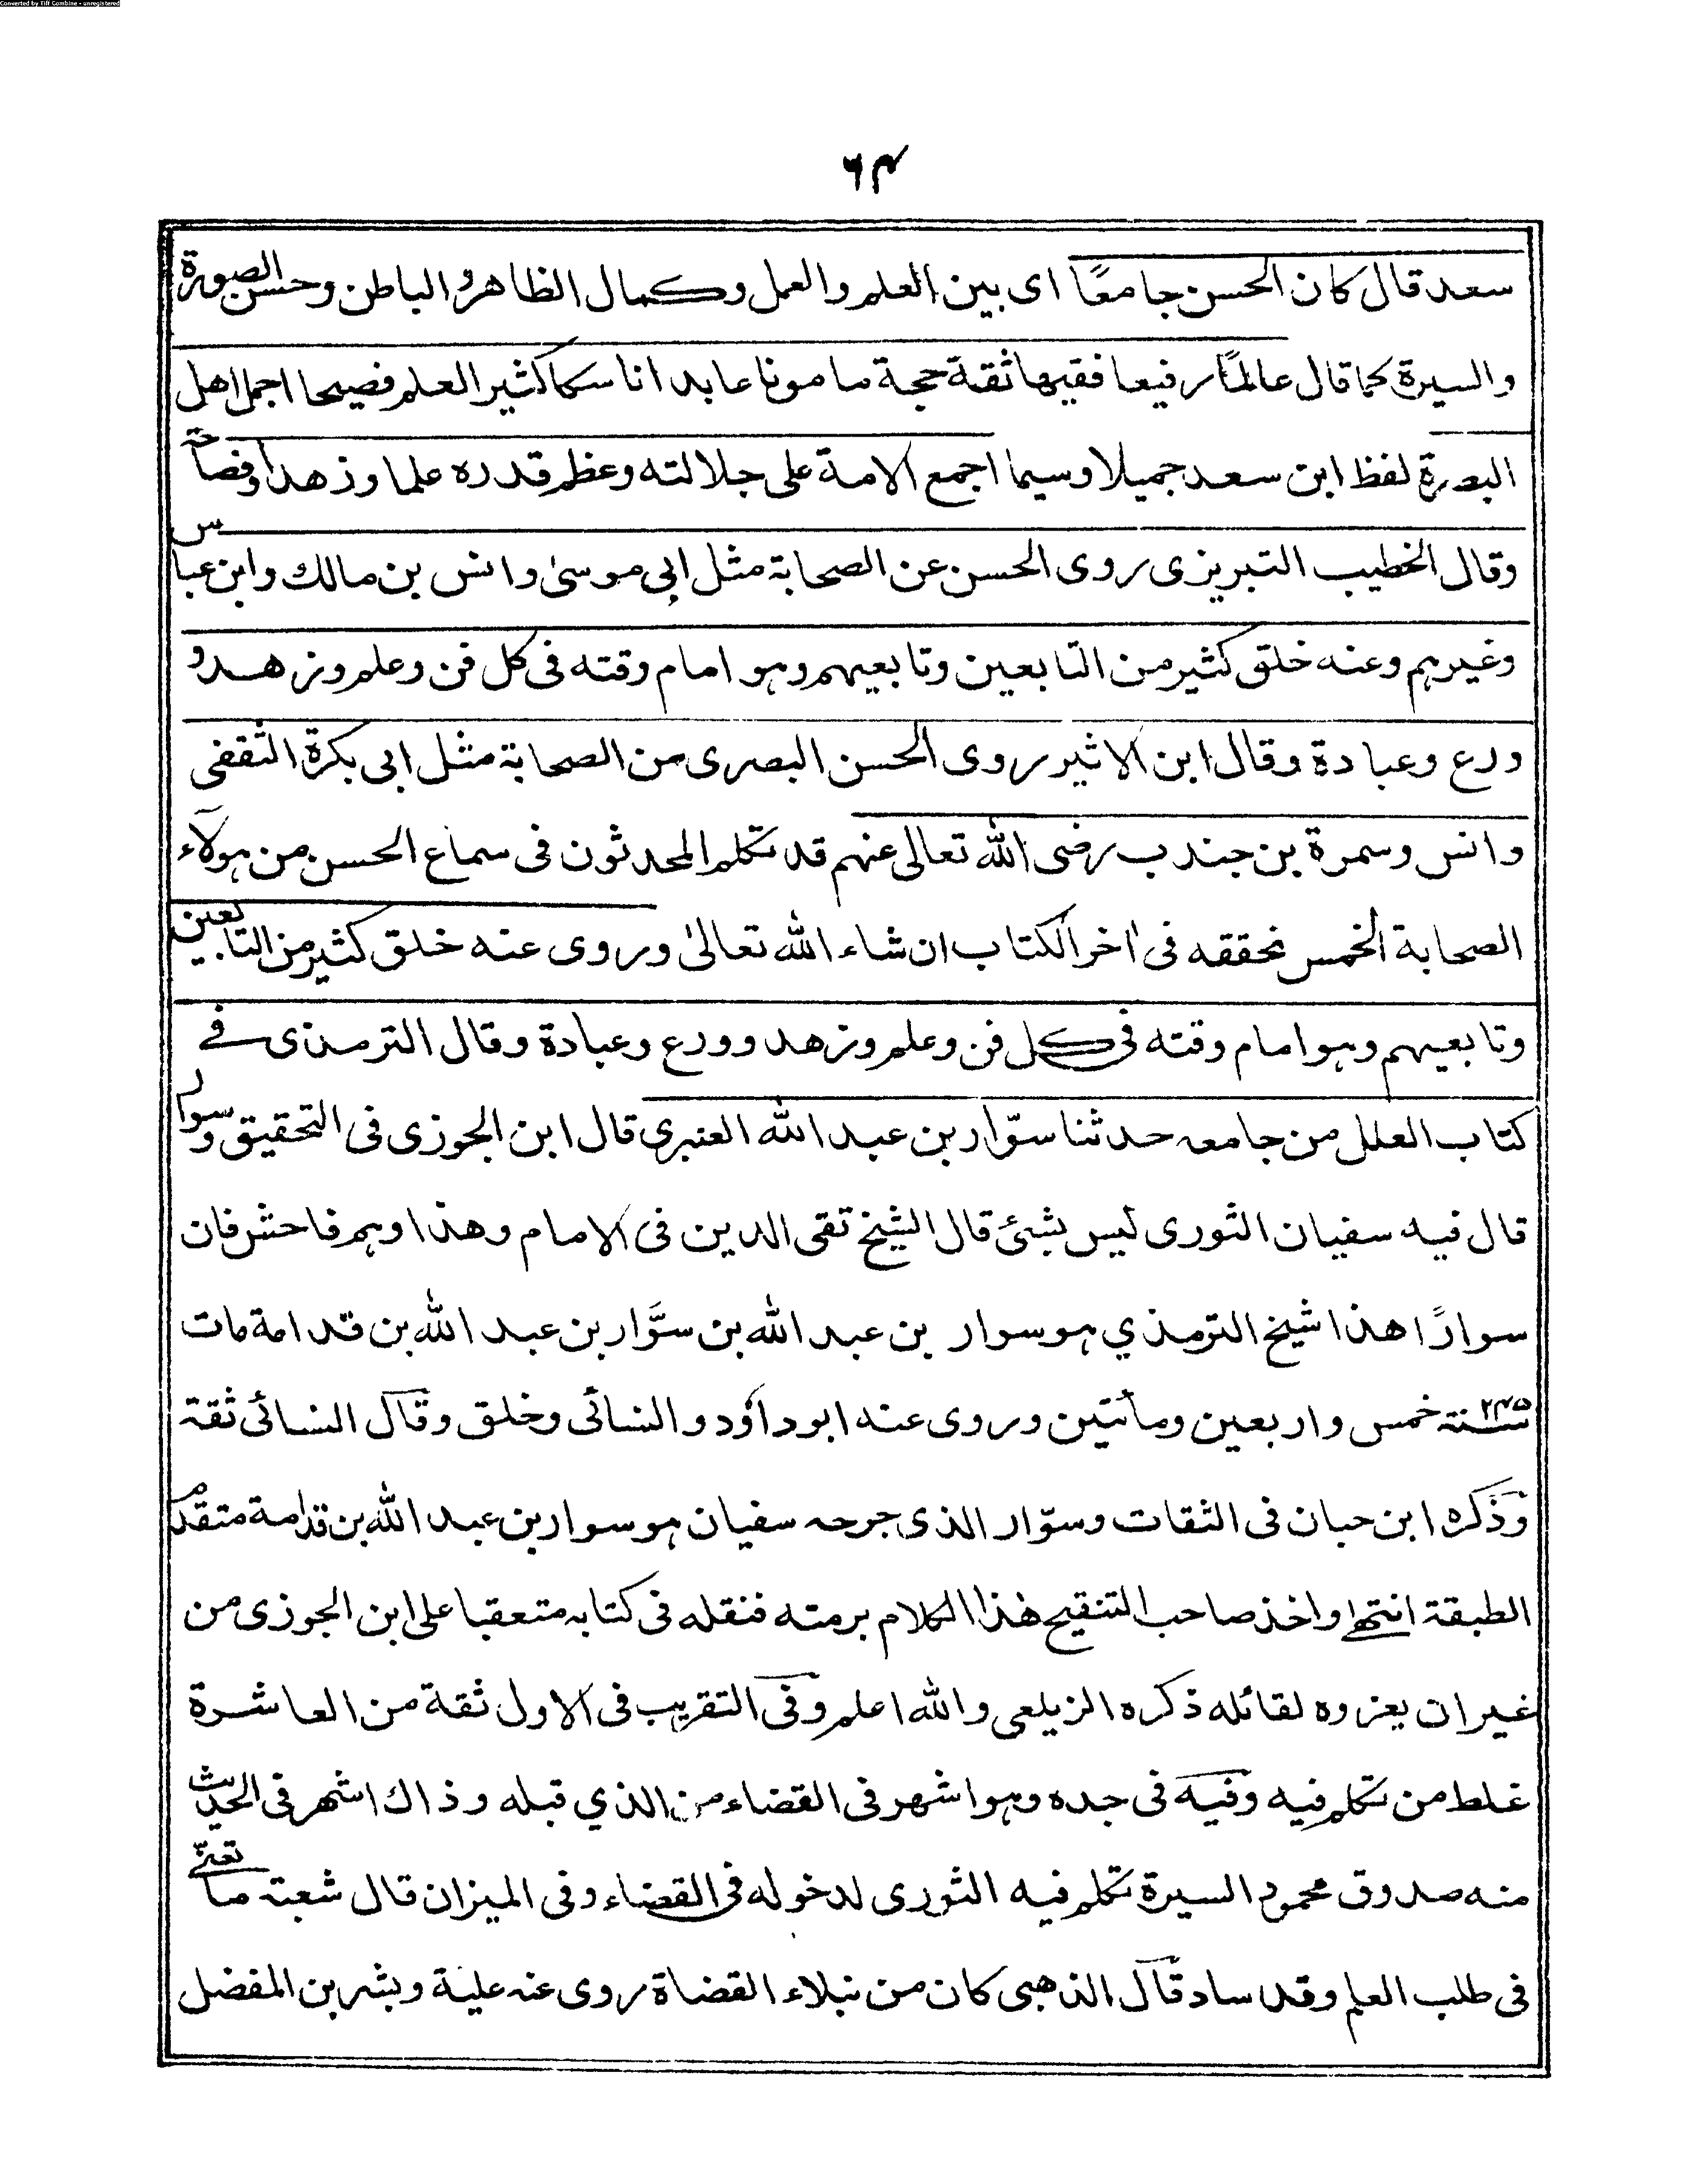 Converted by Tiff Combine - unregistered
۶۴
سعد قال كان الحسن جامعًا اى بين العلم والعمل وكمال الظاهر والباطن وحسن الصورة
والسيرة كما قال عالمًا رفيعا فقيها ثقة حجة مامونا عابدا ناسكا كثير العلم فصيحا اجمل اهل
البصرة لفظ ابن سعد جميلا وسيما اجمع الامة على جلالته وعظم قدره علما وزهدا وفصاحة
وقال الخطيب التبريزى روى الحسن عن الصحابة مثل ابى موسىٰ وانس بن مالك وابن عباس
وغيرہم وعنه خلق كثير من التابعين وتابعيہم وہو امام وقته فى كل فن وعلم وزهد و
ورع وعبادة وقال ابن الاثير روى الحسن البصرى من الصحابة مثل ابى بكرة الثقفى
وانس وسمرة بن جندب رضى الله تعالى عنہم قد تكلم المحدثون فى سماع الحسن من ہولآء
الصحابة الخمس نحققه فى اٰخر الكتاب ان شاء الله تعالىٰ وروى عنه خلق كثير من التابعين
وتابعيہم وہو امام وقته فى كل فن وعلم وزهد وورع وعبادة وقال الترمذى فے
كتاب العلل من جامعہ حدثنا سوّار بن عبد الله العنبرى قال ابن الجوزى فى التحقيق وسوار
قال فيه سفيان الثورى ليس بشئ قال الشيخ تقى الدين فى الامام وهذا وہم فاحش فان
سوارًا هذا شيخ الترمذي ہو سوار بن عبد الله بن سوَّار بن عبد الله بن قدامة مات
سنة ۲۴۵ خمس واربعين ومأتين وروى عنه ابو داؤد والنسائى وخلق وقال النسائى ثقة
وذكره ابن حبان فى الثقات وسوّار الذى جرحہ سفيان ہو سوار بن عبد الله بن قدامة متقدم
الطبقة انتهے واخذ صاحب التنقيح هٰذا الكلام برمته فنقله فى كتابه متعقبا على ابن الجوزى من
غير ان يعزوه لقائله ذكره الزيلعى والله اعلم وفى التقريب فى الاول ثقة من العاشرة
غلط من تكلم فيه وفيه فى جده وہو اشهر فى القضاء من الذي قبله وذاك اشهر فى الحديث
منه صدوق محمود السيرة تكلم فيه الثورى لدخوله فى القضاء وفى الميزان قال شعبة ما تعنّے
فى طلب العلم وقد ساد قال الذهبى كان من نبلاء القضاة روى عنہ علية وبشر بن المفضل